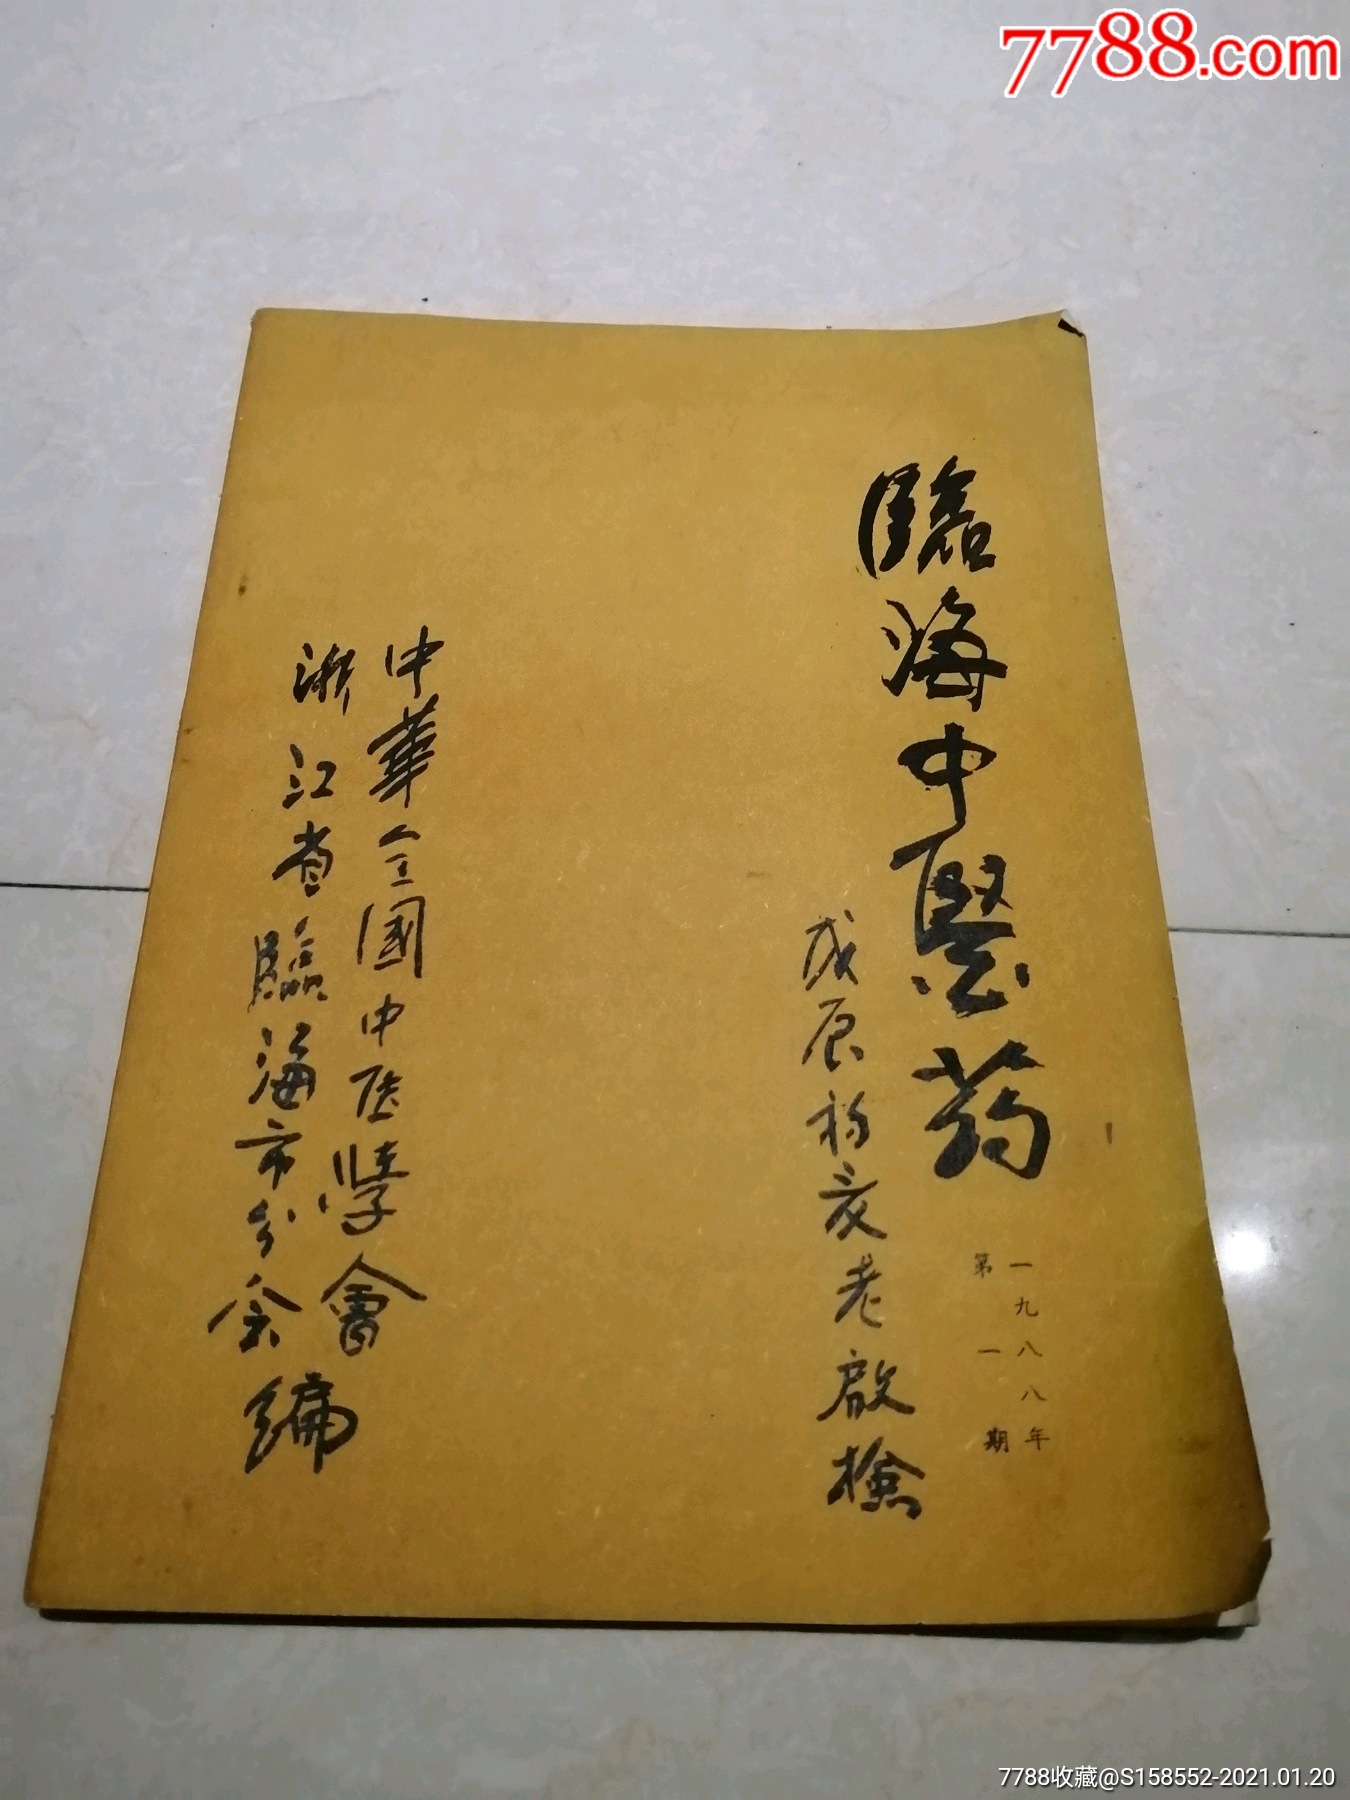 7788.com
臨海中醫药
一九八八年
第一期
戊辰初夏老啟檢
中華全國中医學會
浙江省臨海市分会編
7788收藏@S158552-2021.01.20